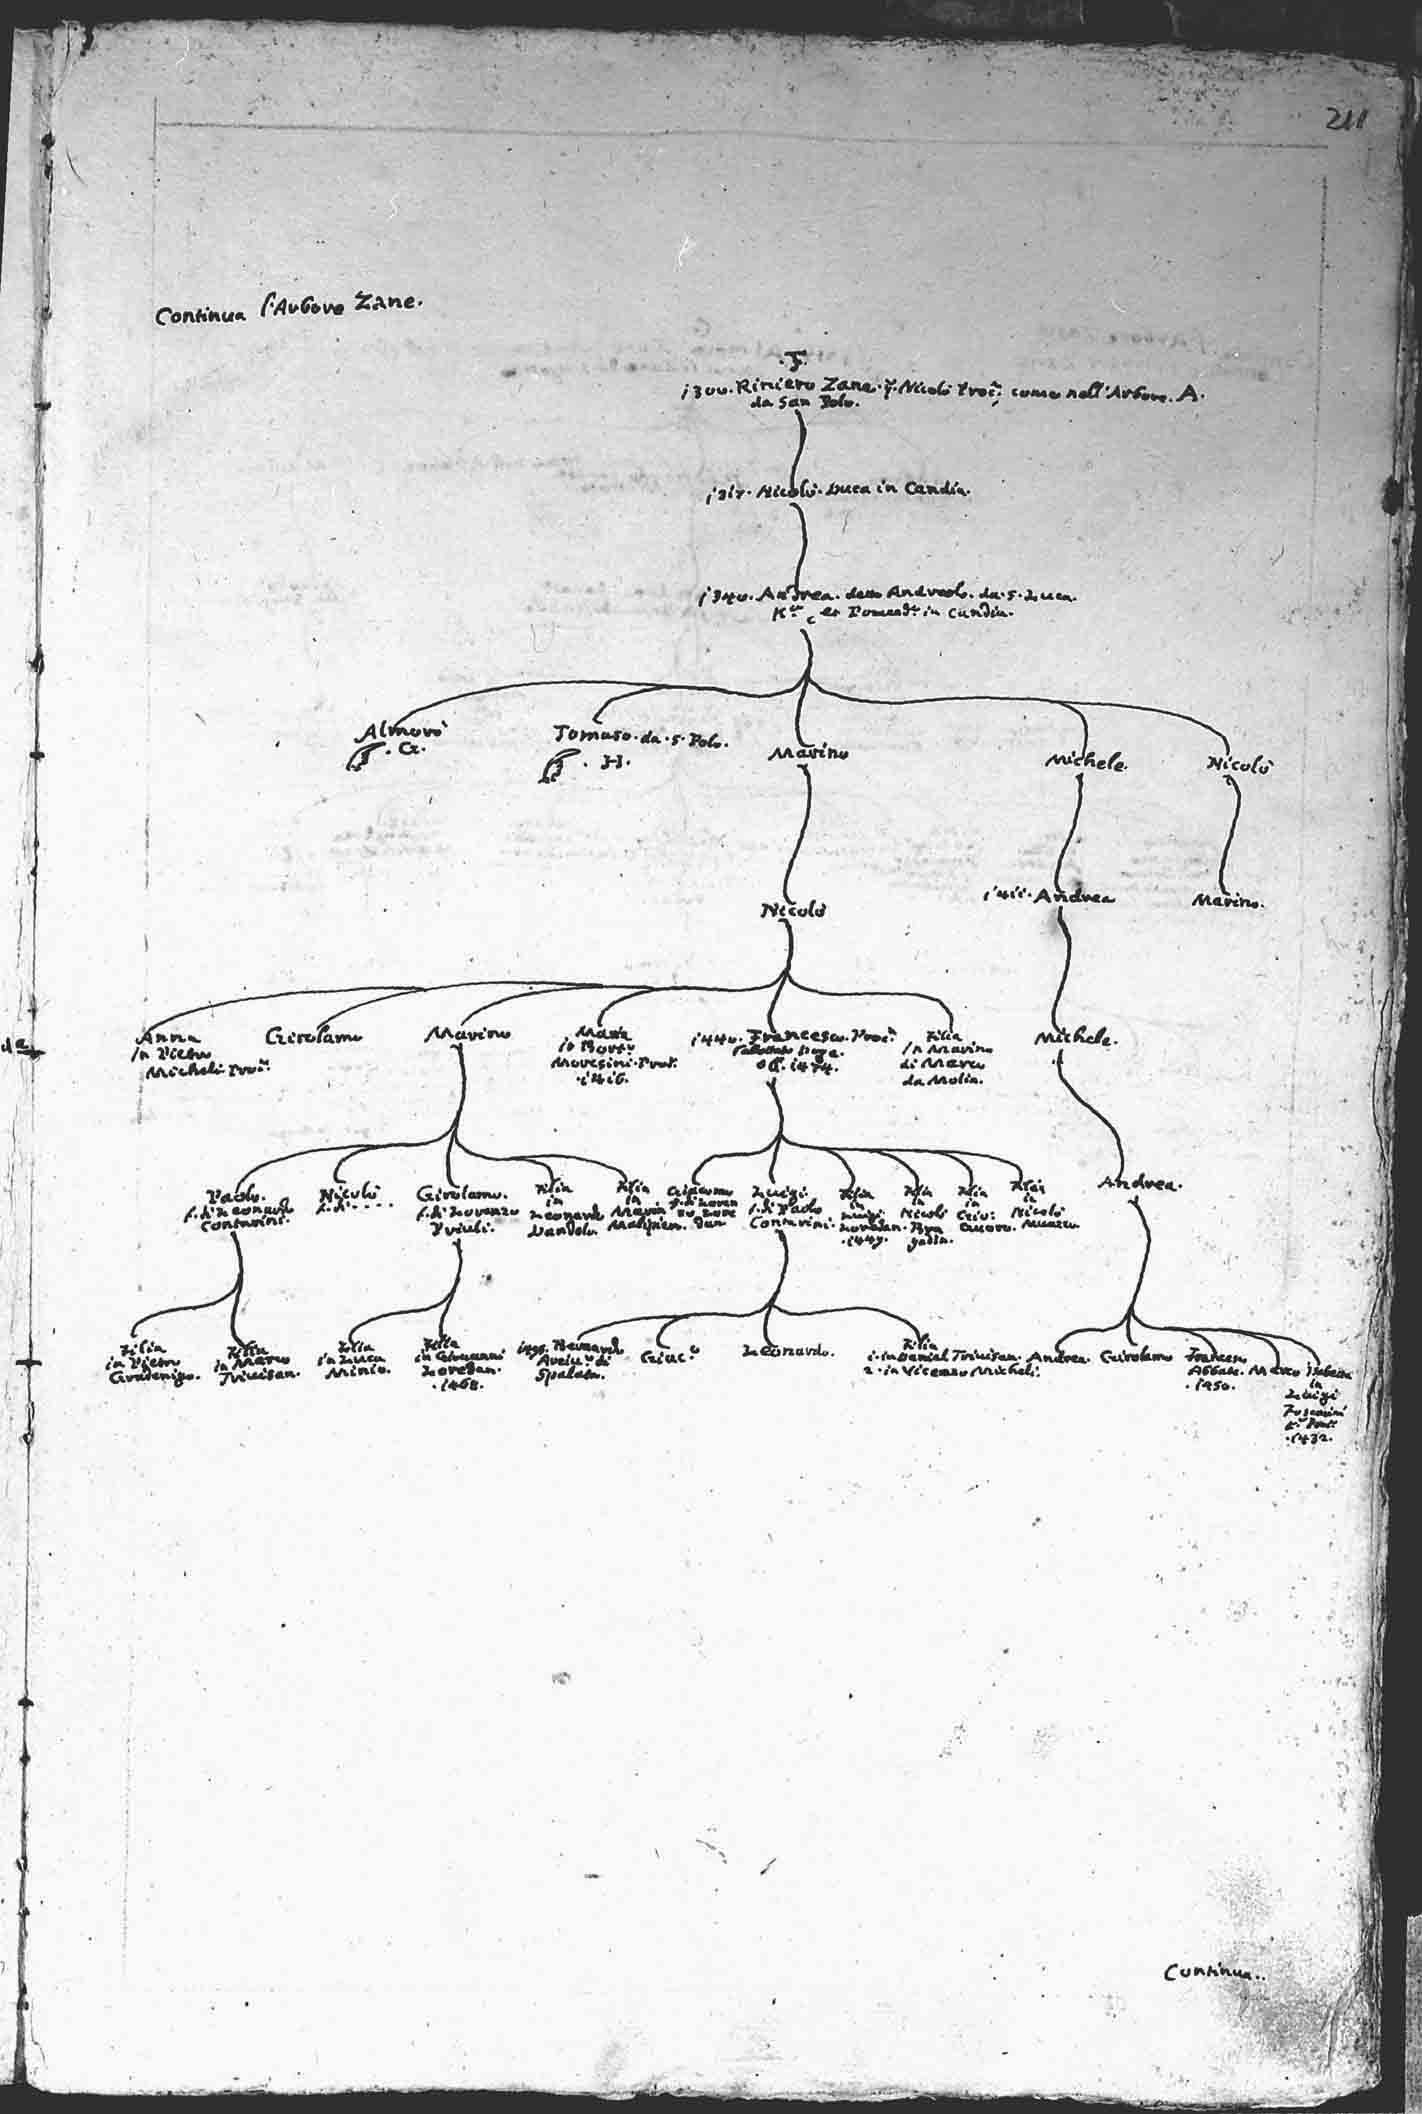 211
Continua l'Arbore Zane.
.F.
1300. Riniero Zane. q. Nicolò Proc.r come nell'Arbore. A.
da San Polo.
1317. Nicolò. Duca in Candia.
1340. Andrea. detto Andreolo. da. S. Luca.
K.r et Comand.e in Candia.
Almorò
. G.
Tomaso. da. S. Polo.
. H.
Marino
Michele.
Nicolò
Nicolò
1411. Andrea
Marino.
Anna
in Pietro
Micheli Proc.r
Girolamo
Marino
Maria
in Bort.o
Moresini. Proc.r
.1416.
1440. Francesco. Proc.r
Doge.
ob. 1474.
Filia
in Marino
di Marco
da Molin.
Michele.
Paolo.
f. di Leonardo
Contarini.
Nicolò
f. di . . . .
Girolamo.
f. di Lorenzo
Priuli.
Filia
in
Leonardo
Dandolo.
Filia
in
Marin
Malipiero.
Giacomo
f. di Loren
zo Lore
dan
Luigi.
f. di Paolo
Contarini.
Filia
in
Luigi
Loredan.
.1449.
Filia
in
Nicolò
Bra
gadin.
Filia
in
Gio:
Filia
in
Nicolò
Muazzo
Andrea.
Filia
in Pietro
Gradenigo.
Filia
in Marco
Trivisan.
Filia
in Luca
Minio.
Filia
in Giovanni
Loredan.
.1468.
Bernardo
Arciv.o di
Spalato.
Giac.o
Leonardo.
Filia
1. in Daniel Trivisan.
2. in Vicenzo Micheli.
Andrea.
Girolamo
Francesco
Abbate.
.1450.
Marco
Isabetta
in
Luigi
Foscarini
K.r Proc.r
.1432.
Continua..